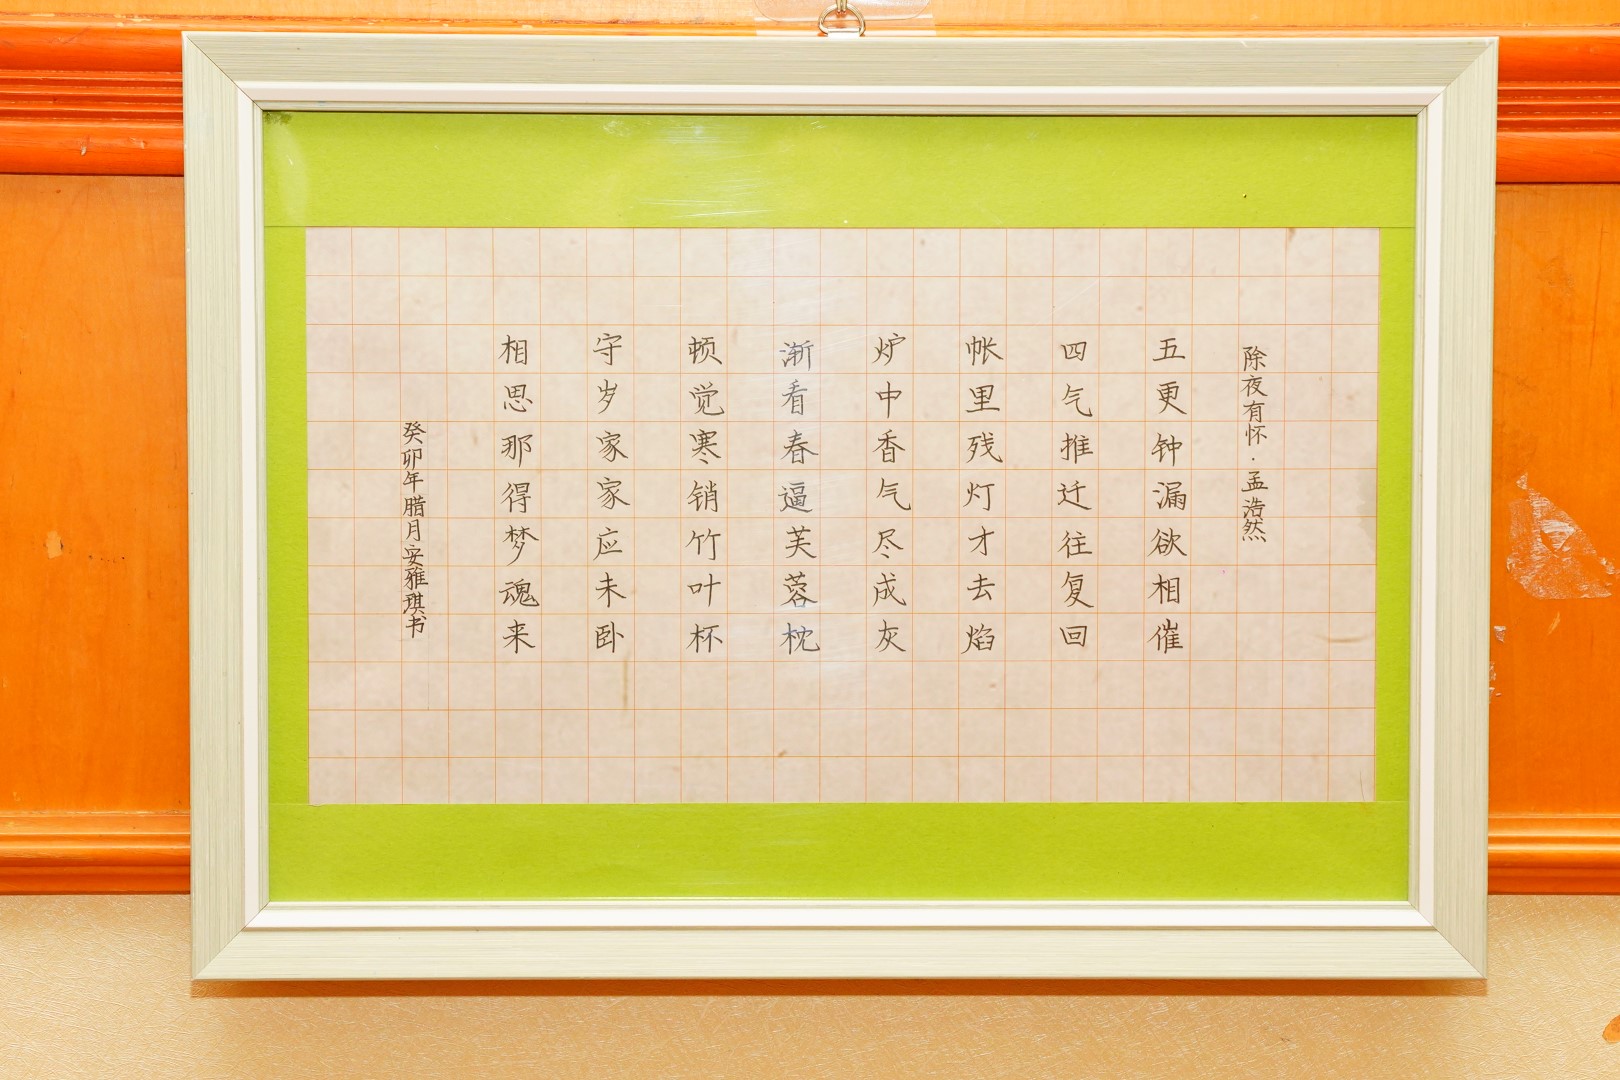 除夜有怀·孟浩然
五更钟漏欲相催
四气推迁往复回
帐里残灯才去焰
炉中香气尽成灰
渐看春逼芙蓉枕
顿觉寒销竹叶杯
守岁家家应未卧
相思那得梦魂来
癸卯年腊月安雅琪书